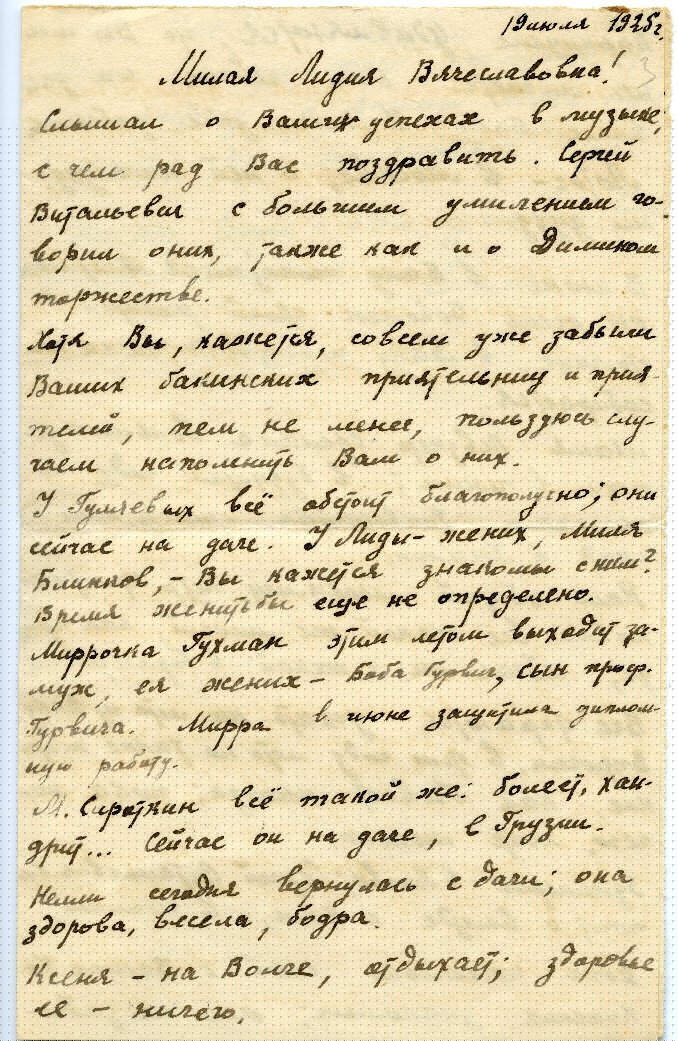 19 июля 1925 г.
3
Милая Лидия Вячеславовна!
Слышал о Ваших успехах в музыке,
с чем рад Вас поздравить. Сергей
Витальевич с большим умилением го-
ворил о них, также как и о Димином
торжестве.
Хотя Вы, кажется, совсем уже забыли
Ваших бакинских приятельниц и прия-
телей, тем не менее, пользуюсь слу-
чаем напомнить Вам о них.
У Гумчевых всё обстоит благополучно; они
сейчас на даче. У Лиды – жених, Миля
Блинков, – Вы кажется знакомы с ним?
Время женитьбы еще не определено.
Миррочка Гухман этим летом выходит за-
муж, ея жених – Боба Гурвич, сын проф.
Гурвича. Мирра в июне защитила диплом-
ную работу.
М. Сироткин всё такой же: болеет, хан-
дрит... Сейчас он на даче, в Грузии.
Нелли сегодня вернулась с дачи; она
здорова, весела, бодра.
Ксеня – на Волге, отдыхает; здоровье
ее – ничего.